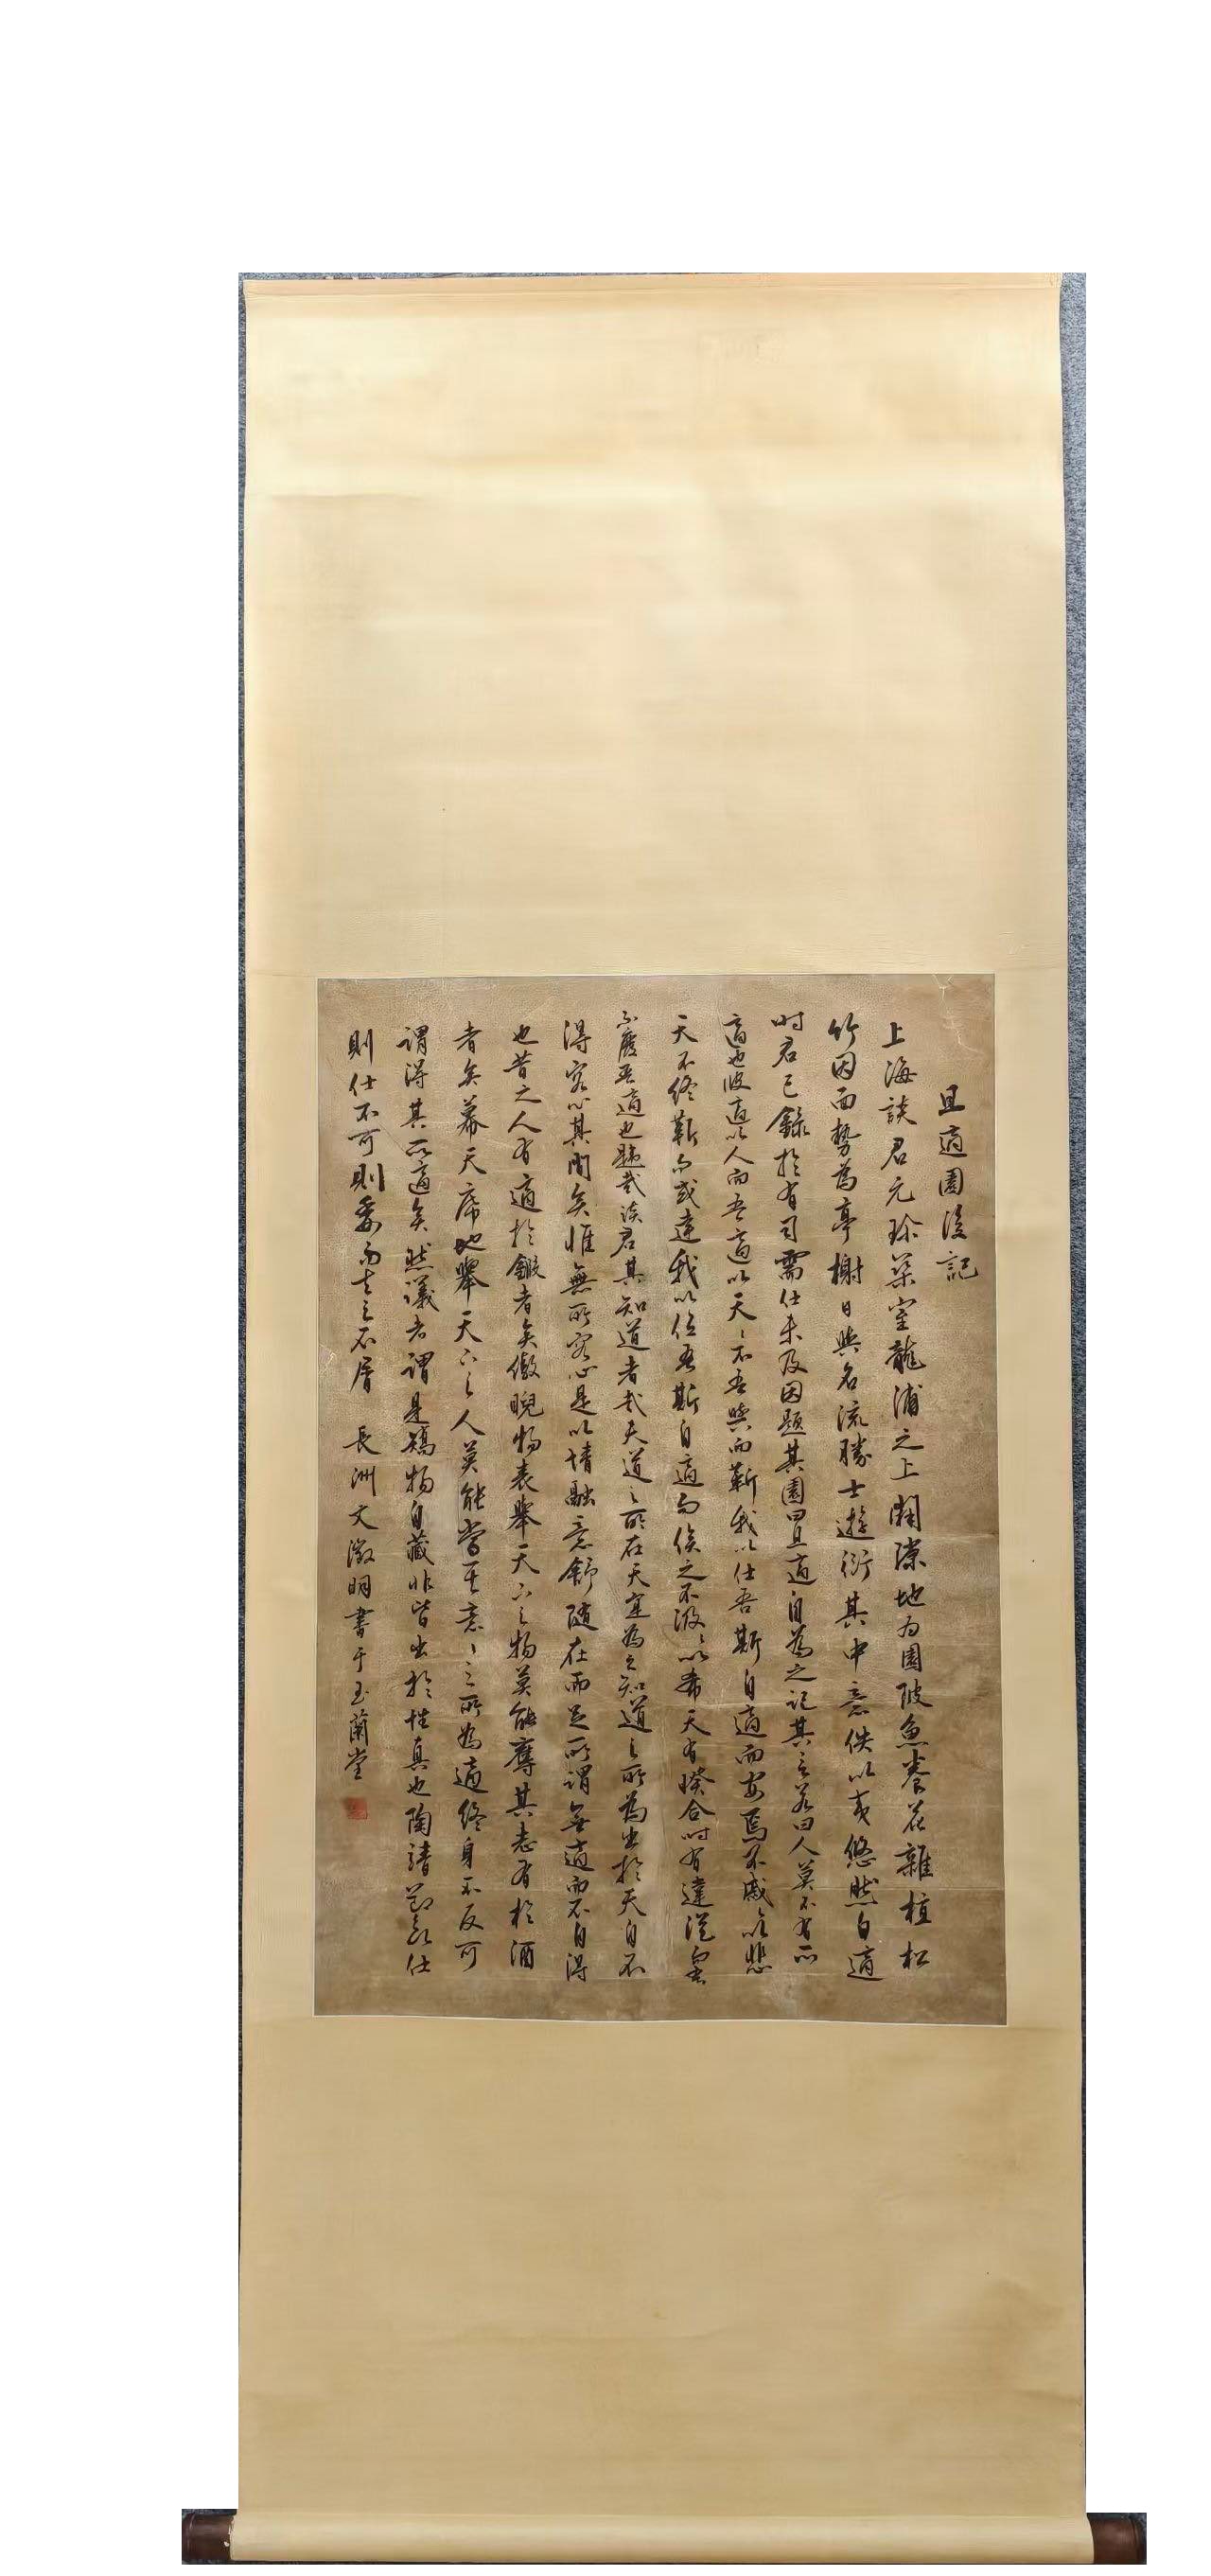 且適園後記
上海談君元珍築室龍浦之上闢隙地為園陂魚養花雜植松
竹因面勢為亭榭日與名流勝士遊衍其中意佚以夷悠然自適
時君已錄於有司需仕未及因題其園曰且適自為之記其言若曰人莫不有所
適也彼適以人而吾適以天天不吾與而蘄我以仕吾斯自適而安焉不戚戚以悲
天不終蘄而或達我以位吾斯自適而俟之不汲汲以希天有睽合時有違從
不廢吾適也韙哉談君其知道者哉夫道之所在天寔為之知道之所為出於天自不
得容心其間矣惟無所容心是以情融意舒隨在而足所謂無適而不自得
也昔之人有適於鍛者矣傲睨物表舉天下之物莫能鷹其志有於酒
者矣幕天席地舉天下之人莫能當其意意之所為適終身不反可
謂得其所適矣然議者謂是矯物自藏非皆出於性真也陶靖節欲仕
則仕不可則委而去之不屑 長洲文徵明書于玉蘭堂